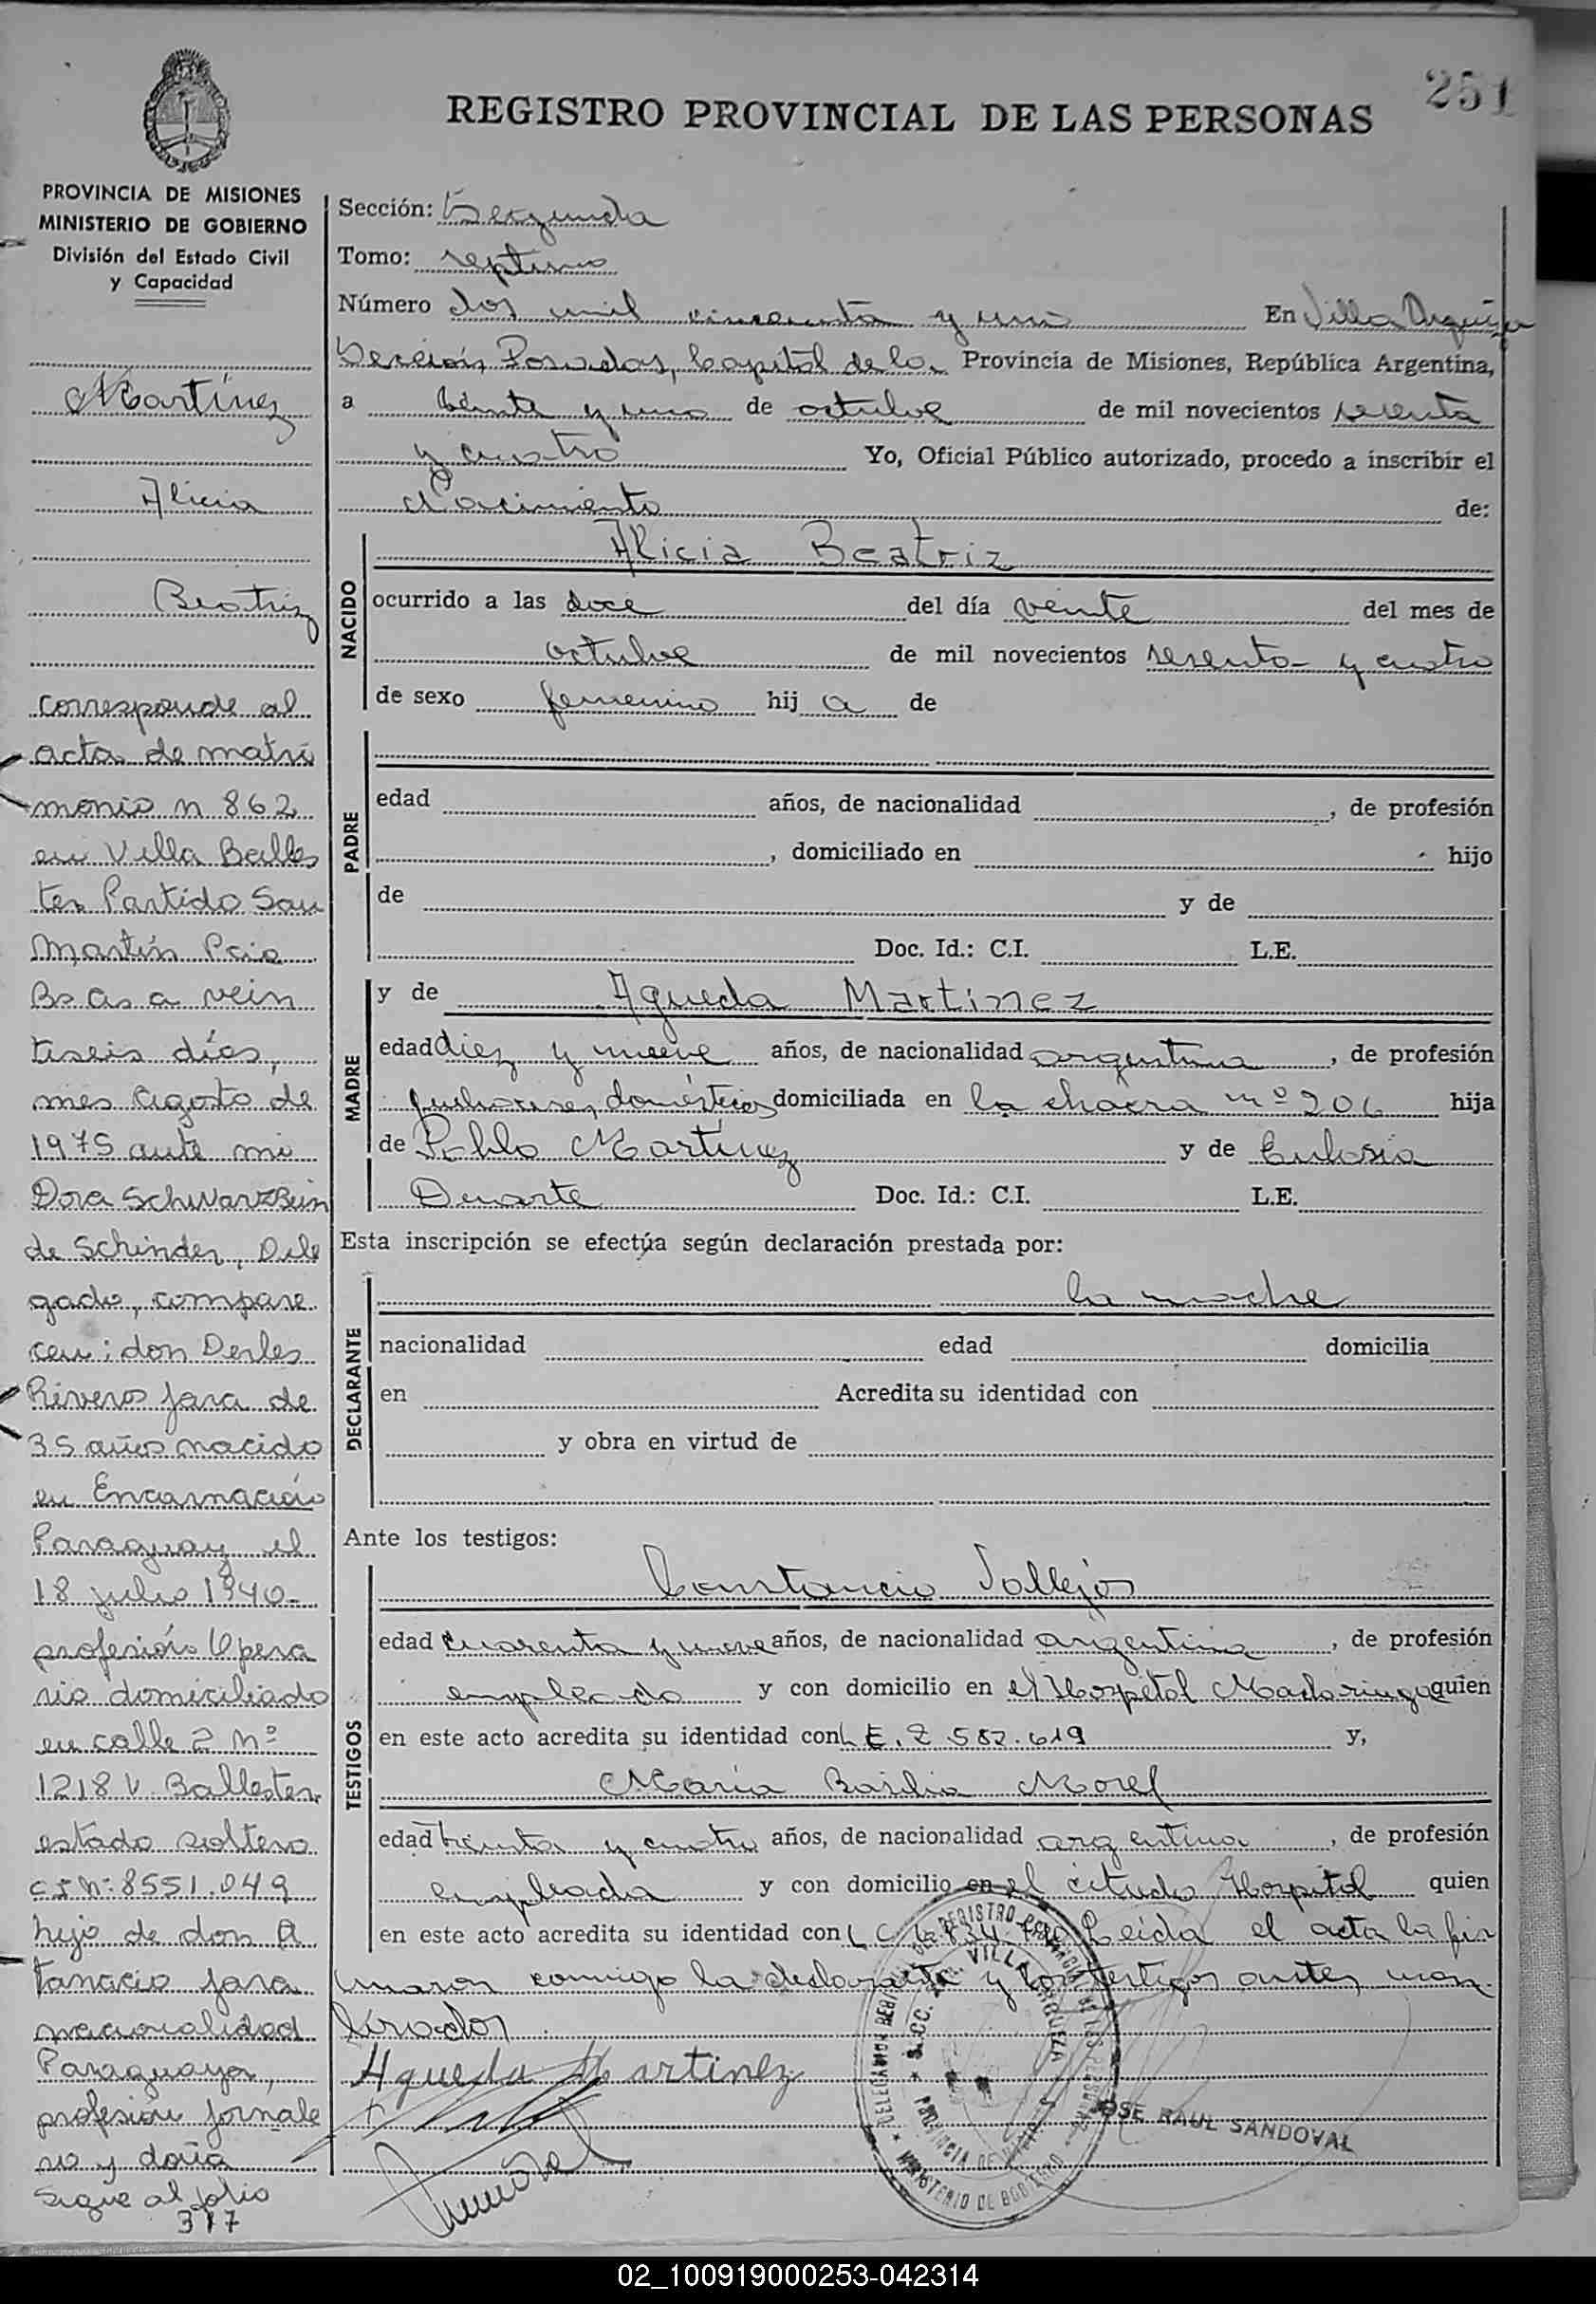 251
REGISTRO PROVINCIAL DE LAS PERSONAS
PROVINCIA DE MISIONES
MINISTERIO DE GOBIERNO
División del Estado Civil
y Capacidad
Martínez
Alicia
Beatriz
corresponde al
acta de matri
monio n 862
en Villa Balles
ter Partido San
Martín Pcia
Bs As a vein
tiseis días,
mes Agosto de
1975 ante mi
Dora Schwarzbein
de Schinder, Dele
gado, compare
cen: don Derles
Riveros Jara de
35 años nacido
en Encarnación
Paraguay el
18 julio 1940-
profesión Opera
rio domiciliado
en calle 2 Nº
1218 V. Ballester
estado soltero
C I Nº: 8551.049
hijo de don A
tanacio Jara
nacionalidad
Paraguaya,
profesión jornale
ro y doña
Sigue al folio
317
Sección: Segunda
Tomo: septimo
Número dos mil cincuenta y uno En Villa Urquiza
Sección Posadas, Capital de la Provincia de Misiones, República Argentina,
a treinta y uno de octubre de mil novecientos sesenta
y cuatro Yo, Oficial Público autorizado, procedo a inscribir el
Nacimiento de:
NACIDO
Alicia Beatriz
ocurrido a las doce del día veinte del mes de
octubre de mil novecientos sesenta y cuatro
de sexo femenino hij a de
PADRE
edad años, de nacionalidad , de profesión
, domiciliado en hijo
de y de
Doc. Id.: C.I. L.E.
MADRE
y de Agueda Martinez
edad diez y nueve años, de nacionalidad argentina , de profesión
domésticos domiciliada en la chacra nº 206 hija
de Pablo Martínez y de
Duarte Doc. Id.: C.I. L.E.
Esta inscripción se efectúa según declaración prestada por:
DECLARANTE
la madre
nacionalidad edad domicilia
en Acredita su identidad con
y obra en virtud de
Ante los testigos:
TESTIGOS
Constancio Vallejos
edad cuarenta y nueve años, de nacionalidad argentina , de profesión
empleado y con domicilio en el Hospital Madariaga quien
en este acto acredita su identidad con L E. 2.582.619 y,
María Basilia Morel
edad treinta y cuatro años, de nacionalidad argentina , de profesión
empleada y con domicilio en el citado Hospital quien
en este acto acredita su identidad con L C Leida el acta la fir
maron conmigo la declarante y los testigos antes men
cionados.
Agueda Martinez
JOSE RAUL SANDOVAL
02_100919000253-042314